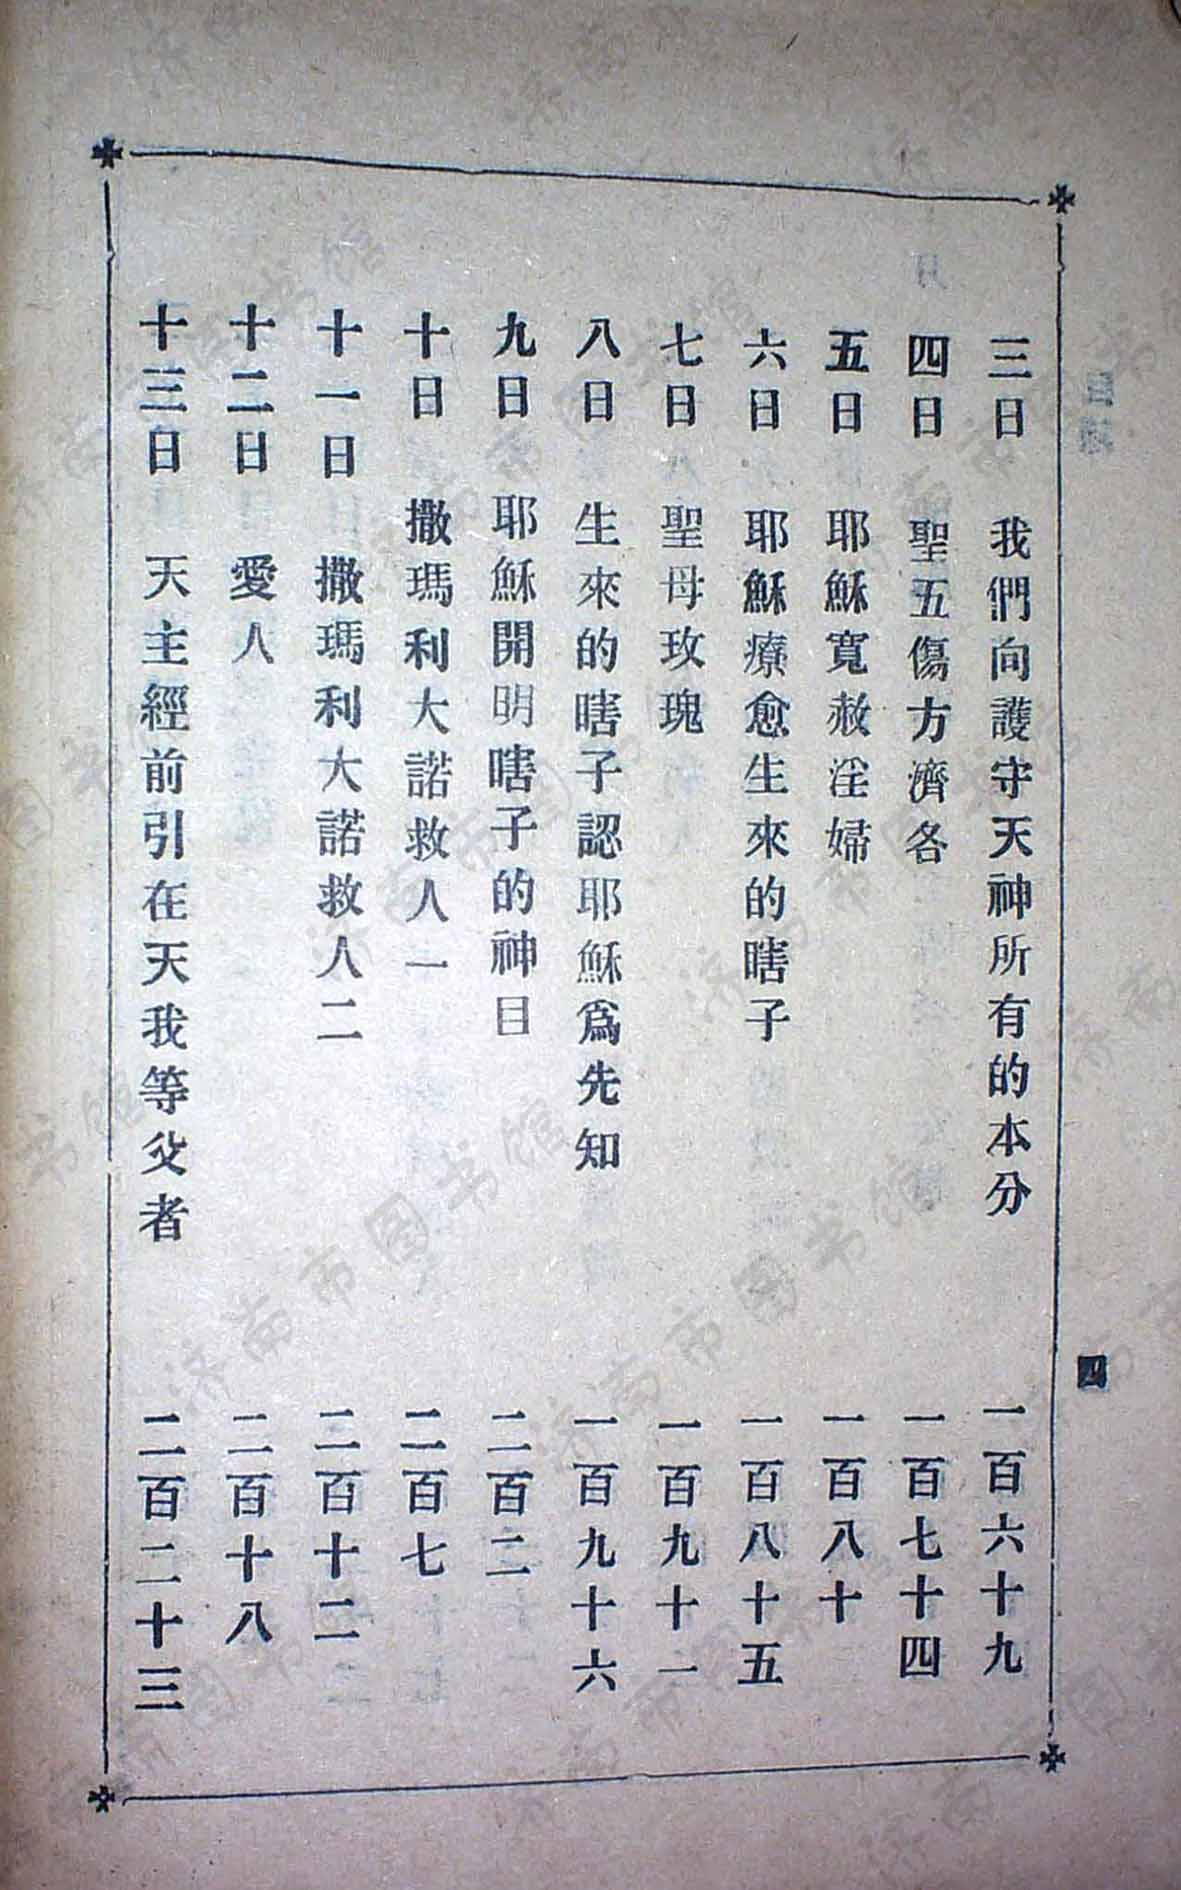 目錄
四
三日 我們向護守天神所有的本分 一百六十九
四日 聖五傷方濟各 一百七十四
五日 耶穌寬赦淫婦 一百八十
六日 耶穌療愈生來的瞎子 一百八十五
七日 聖母玫瑰 一百九十一
八日 生來的瞎子認耶穌爲先知 一百九十六
九日 耶穌開明瞎子的神目 二百二
十日 撒瑪利大諾救人一 二百七
十一日 撒瑪利大諾救人二 二百十二
十二日 愛人 二百十八
十三日 天主經前引在天我等父者 二百二十三
济南市图书馆